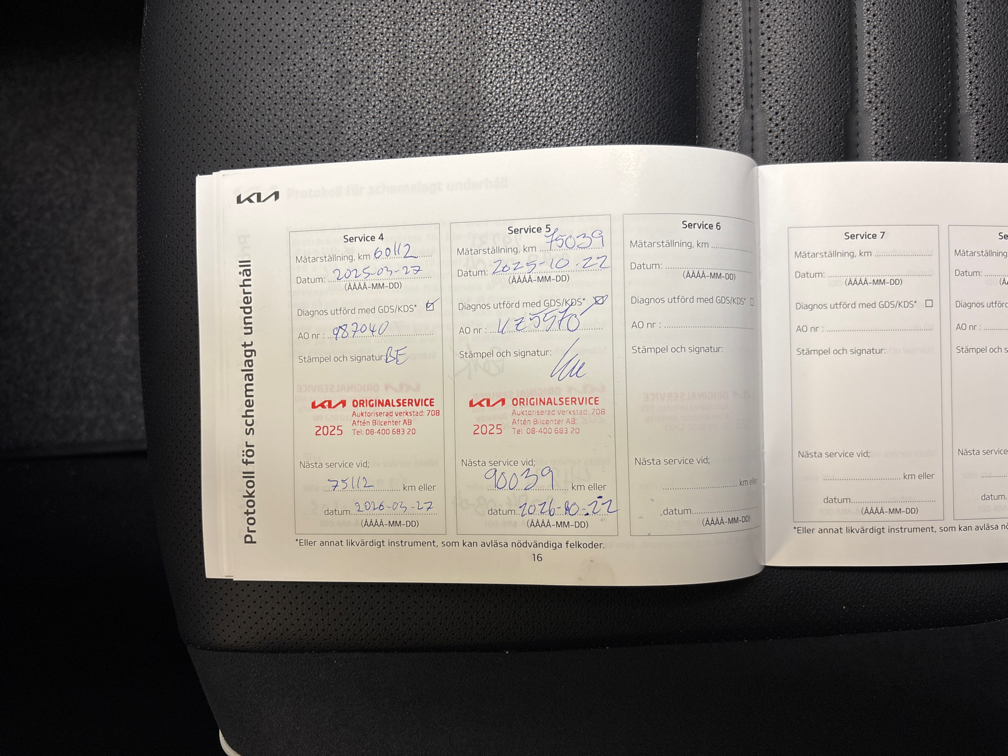 KIA
Protokoll för schemalagt underhåll
Service 4
Mätarställning, km 60112
Datum: 2025-03-27
(ÅÅÅÅ-MM-DD)
Diagnos utförd med GDS/KDS*
AO nr : 987040
Stämpel och signatur: BE
KIA ORIGINALSERVICE
Auktoriserad verkstad: 708
Aftén Bilcenter AB
2025 Tel: 08-400 683 20
Nästa service vid;
75112 km eller
datum 2026-03-27
(ÅÅÅÅ-MM-DD)
Service 5
Mätarställning, km 75039
Datum: 2025-10-22
(ÅÅÅÅ-MM-DD)
Diagnos utförd med GDS/KDS*
AO nr :
Stämpel och signatur:
KIA ORIGINALSERVICE
Auktoriserad verkstad: 708
Aftén Bilcenter AB
2025 Tel: 08-400 683 20
Nästa service vid;
90039 km eller
datum 2026-10-22
(ÅÅÅÅ-MM-DD)
Service 6
Mätarställning, km
Datum:
(ÅÅÅÅ-MM-DD)
Diagnos utförd med GDS/KDS*
AO nr :
Stämpel och signatur:
Nästa service vid;
km eller
datum
(ÅÅÅÅ-MM-DD)
*Eller annat likvärdigt instrument, som kan avläsa nödvändiga felkoder.
16
Service 7
Mätarställning, km
Datum:
(ÅÅÅÅ-MM-DD)
Diagnos utförd med GDS/KDS*
AO nr :
Stämpel och signatur:
Nästa service vid;
km eller
datum
(ÅÅÅÅ-MM-DD)
Se
Mätarställning,
Datum:
(Å
Diagnos utförd
AO nr :
Stämpel och s
Nästa service
datum
(Å
*Eller annat likvärdigt instrument, som kan avläsa nö